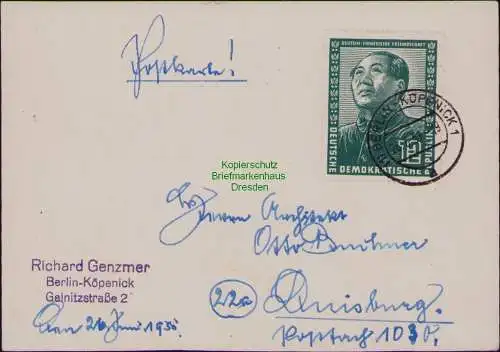 Postkarte!
DEUTSCH-CHINESISCHE FREUNDSCHAFT
DEUTSCHE
DEMOKRATISCHE
REPUBLIK
12
BERLIN-KÖPENICK 1
Kopierschutz
Briefmarkenhaus
Dresden
Herrn Architekt
Otto
22a Duisburg.
Postfach 1030.
Richard Genzmer
Berlin-Köpenick
Gelnitzstraße 2
den 26 Juni 195